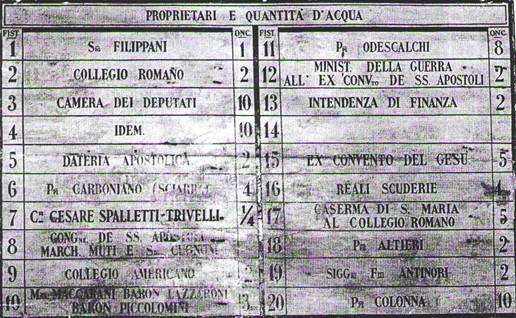 PROPRIETARI E QUANTITÀ D'ACQUA
FIST. ONC.
1 Sri FILIPPANI 1
2 COLLEGIO ROMANO 2
3 CAMERA DEI DEPUTATI 10
4 IDEM. 10
5 DATERIA APOSTOLICA 2
6 Ppe CARBONIANO (SCIARRA) 4
7 Cte CESARE SPALLETTI-TRIVELLI. 1/4
8 CONGne DE SS. APOSTOLI
MARCH. MUTI E
9 COLLEGIO AMERICANO 2
10 MACCARANI BARON LAZZARONI
BARON PICCOLOMINI 3
FIST. ONC.
11 ODESCALCHI 8
12 MINIST. DELLA GUERRA
ALL' EX CONVto DE SS. APOSTOLI 2
13 INTENDENZA DI FINANZA 2
14
15 EX CONVENTO DEL GESÙ 5
16 REALI SCUDERIE 4
17 CASERMA DI S. MARIA
AL COLLEGIO ROMANO 5
18 ALTIERI 2
19 ANTINORI 2
20 COLONNA 10